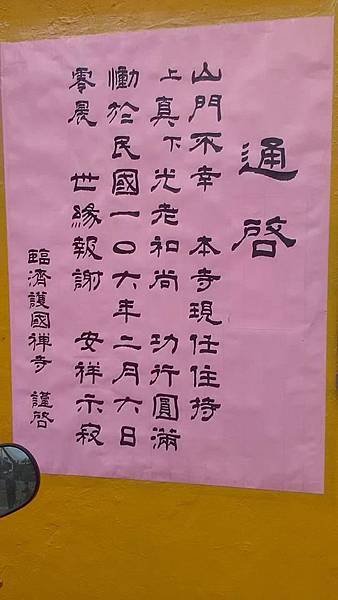 通啓
山門不幸 本寺現任住持
上真下光老和尚 功行圓滿
慟於民國一〇六年二月六日
零晨 世緣報謝 安祥示寂
臨濟護國禪寺 謹啓